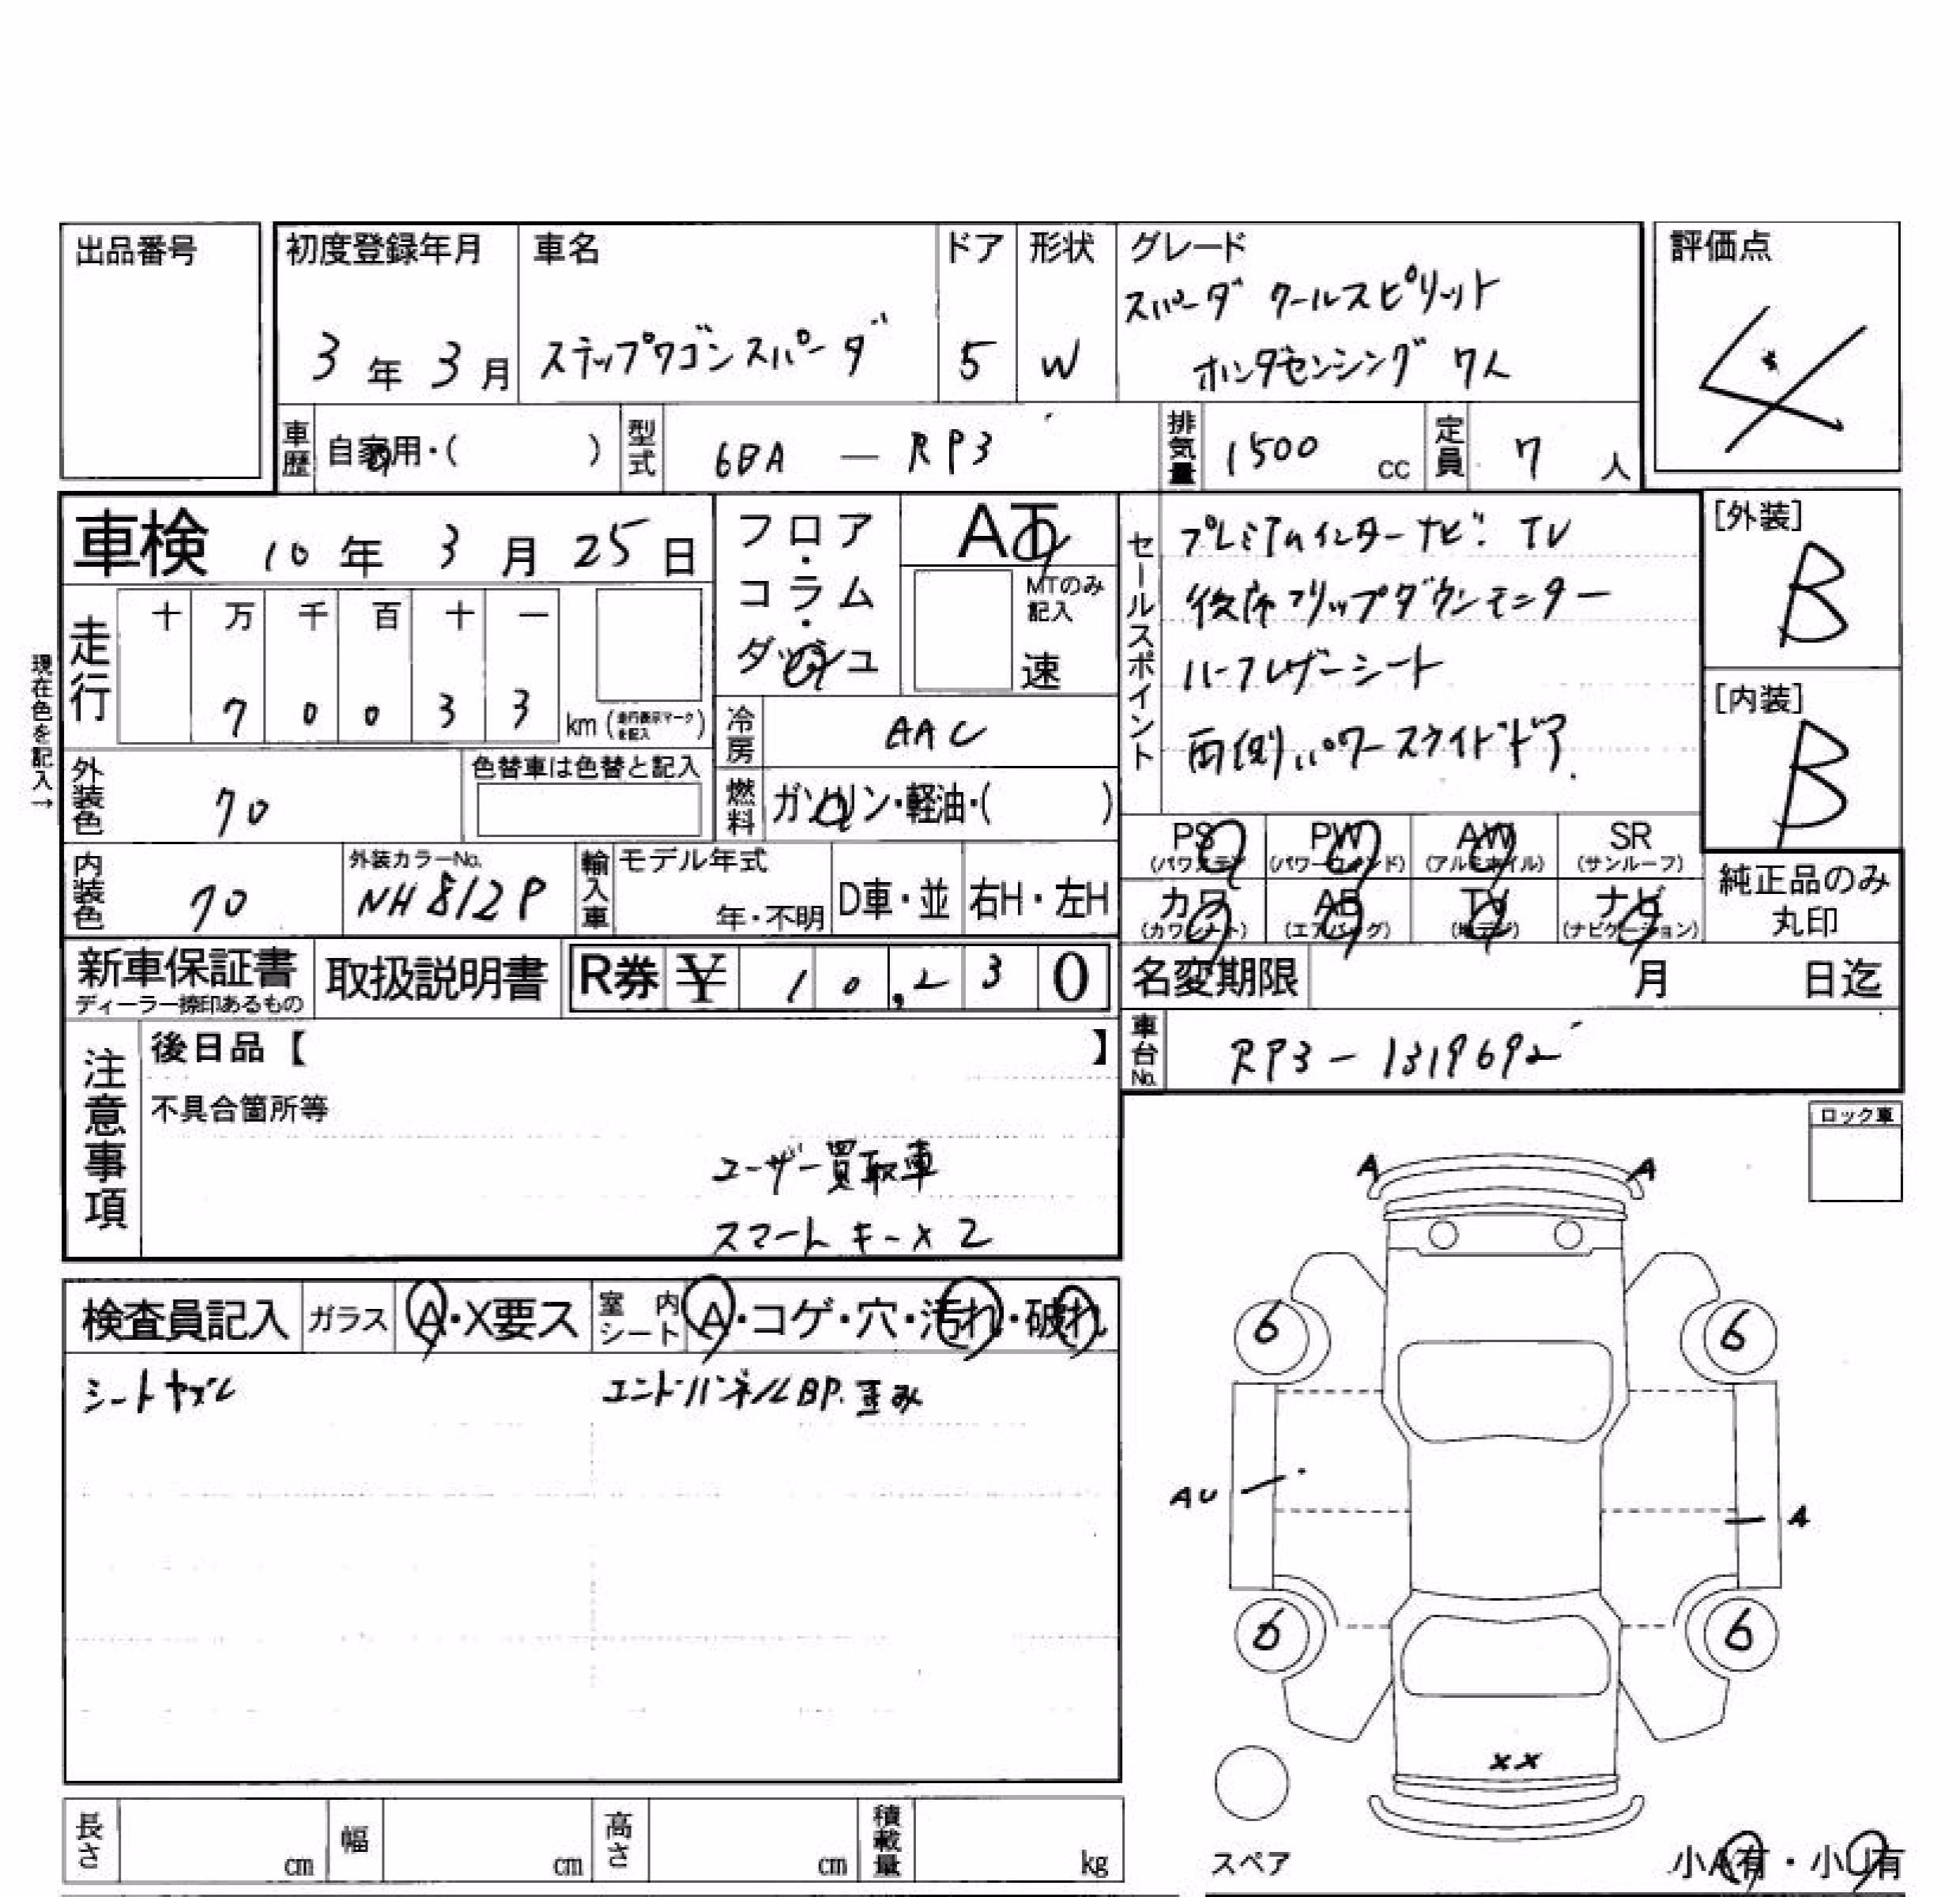 出品番号
初度登録年月
3年3月
車名
ステップワゴンスパーダ
ドア
5
形状
W
グレード
スパーダ クールスピリット
ホンダセンシング 7人
評価点
4
車歴
自家用・( )
型式
6BA — RP3
排気量
1500 cc
定員
7 人
車検 10年 3月 25日
フロア・コラム・ダッシュ
AT
MTのみ記入
速
セールスポイント
プレミアムインターナビ. TV
後席フリップダウンモニター
ハーフレザーシート
両側パワースライドドア.
[外装]
B
[内装]
B
現在色を記入→
走行
十 万 千 百 十 一
7 0 0 3 3
km (走行表示マークを記入)
冷房
AAC
外装色
70
色替車は色替と記入
燃料
ガソリン・軽油・( )
PS (パワステ)
PW (パワーウィンド)
AW (アルミホイル)
SR (サンルーフ)
カワ (カワシート)
AB (エアバッグ)
TV (地デジ)
ナビ (ナビゲーション)
純正品のみ
丸印
内装色
70
外装カラーNo.
NH812P
輸入車
モデル年式
年・不明
D車・並
右H・左H
新車保証書
ディーラー捺印あるもの
取扱説明書
R券 ¥ 10,230
名変期限 月 日迄
車台No.
RP3 - 1319692
注意事項
後日品【 】
不具合箇所等
ユーザー買取車
スマートキー×2
ロック車
検査員記入
ガラス
A・X要ス
室内シート
A・コゲ・穴・汚れ・破れ
シートヤブレ
エンドパネルBP.歪み
A
A
6
6
AU
A
6
6
XX
スペア
小A有・小U有
長さ cm
幅 cm
高さ cm
積載量 kg